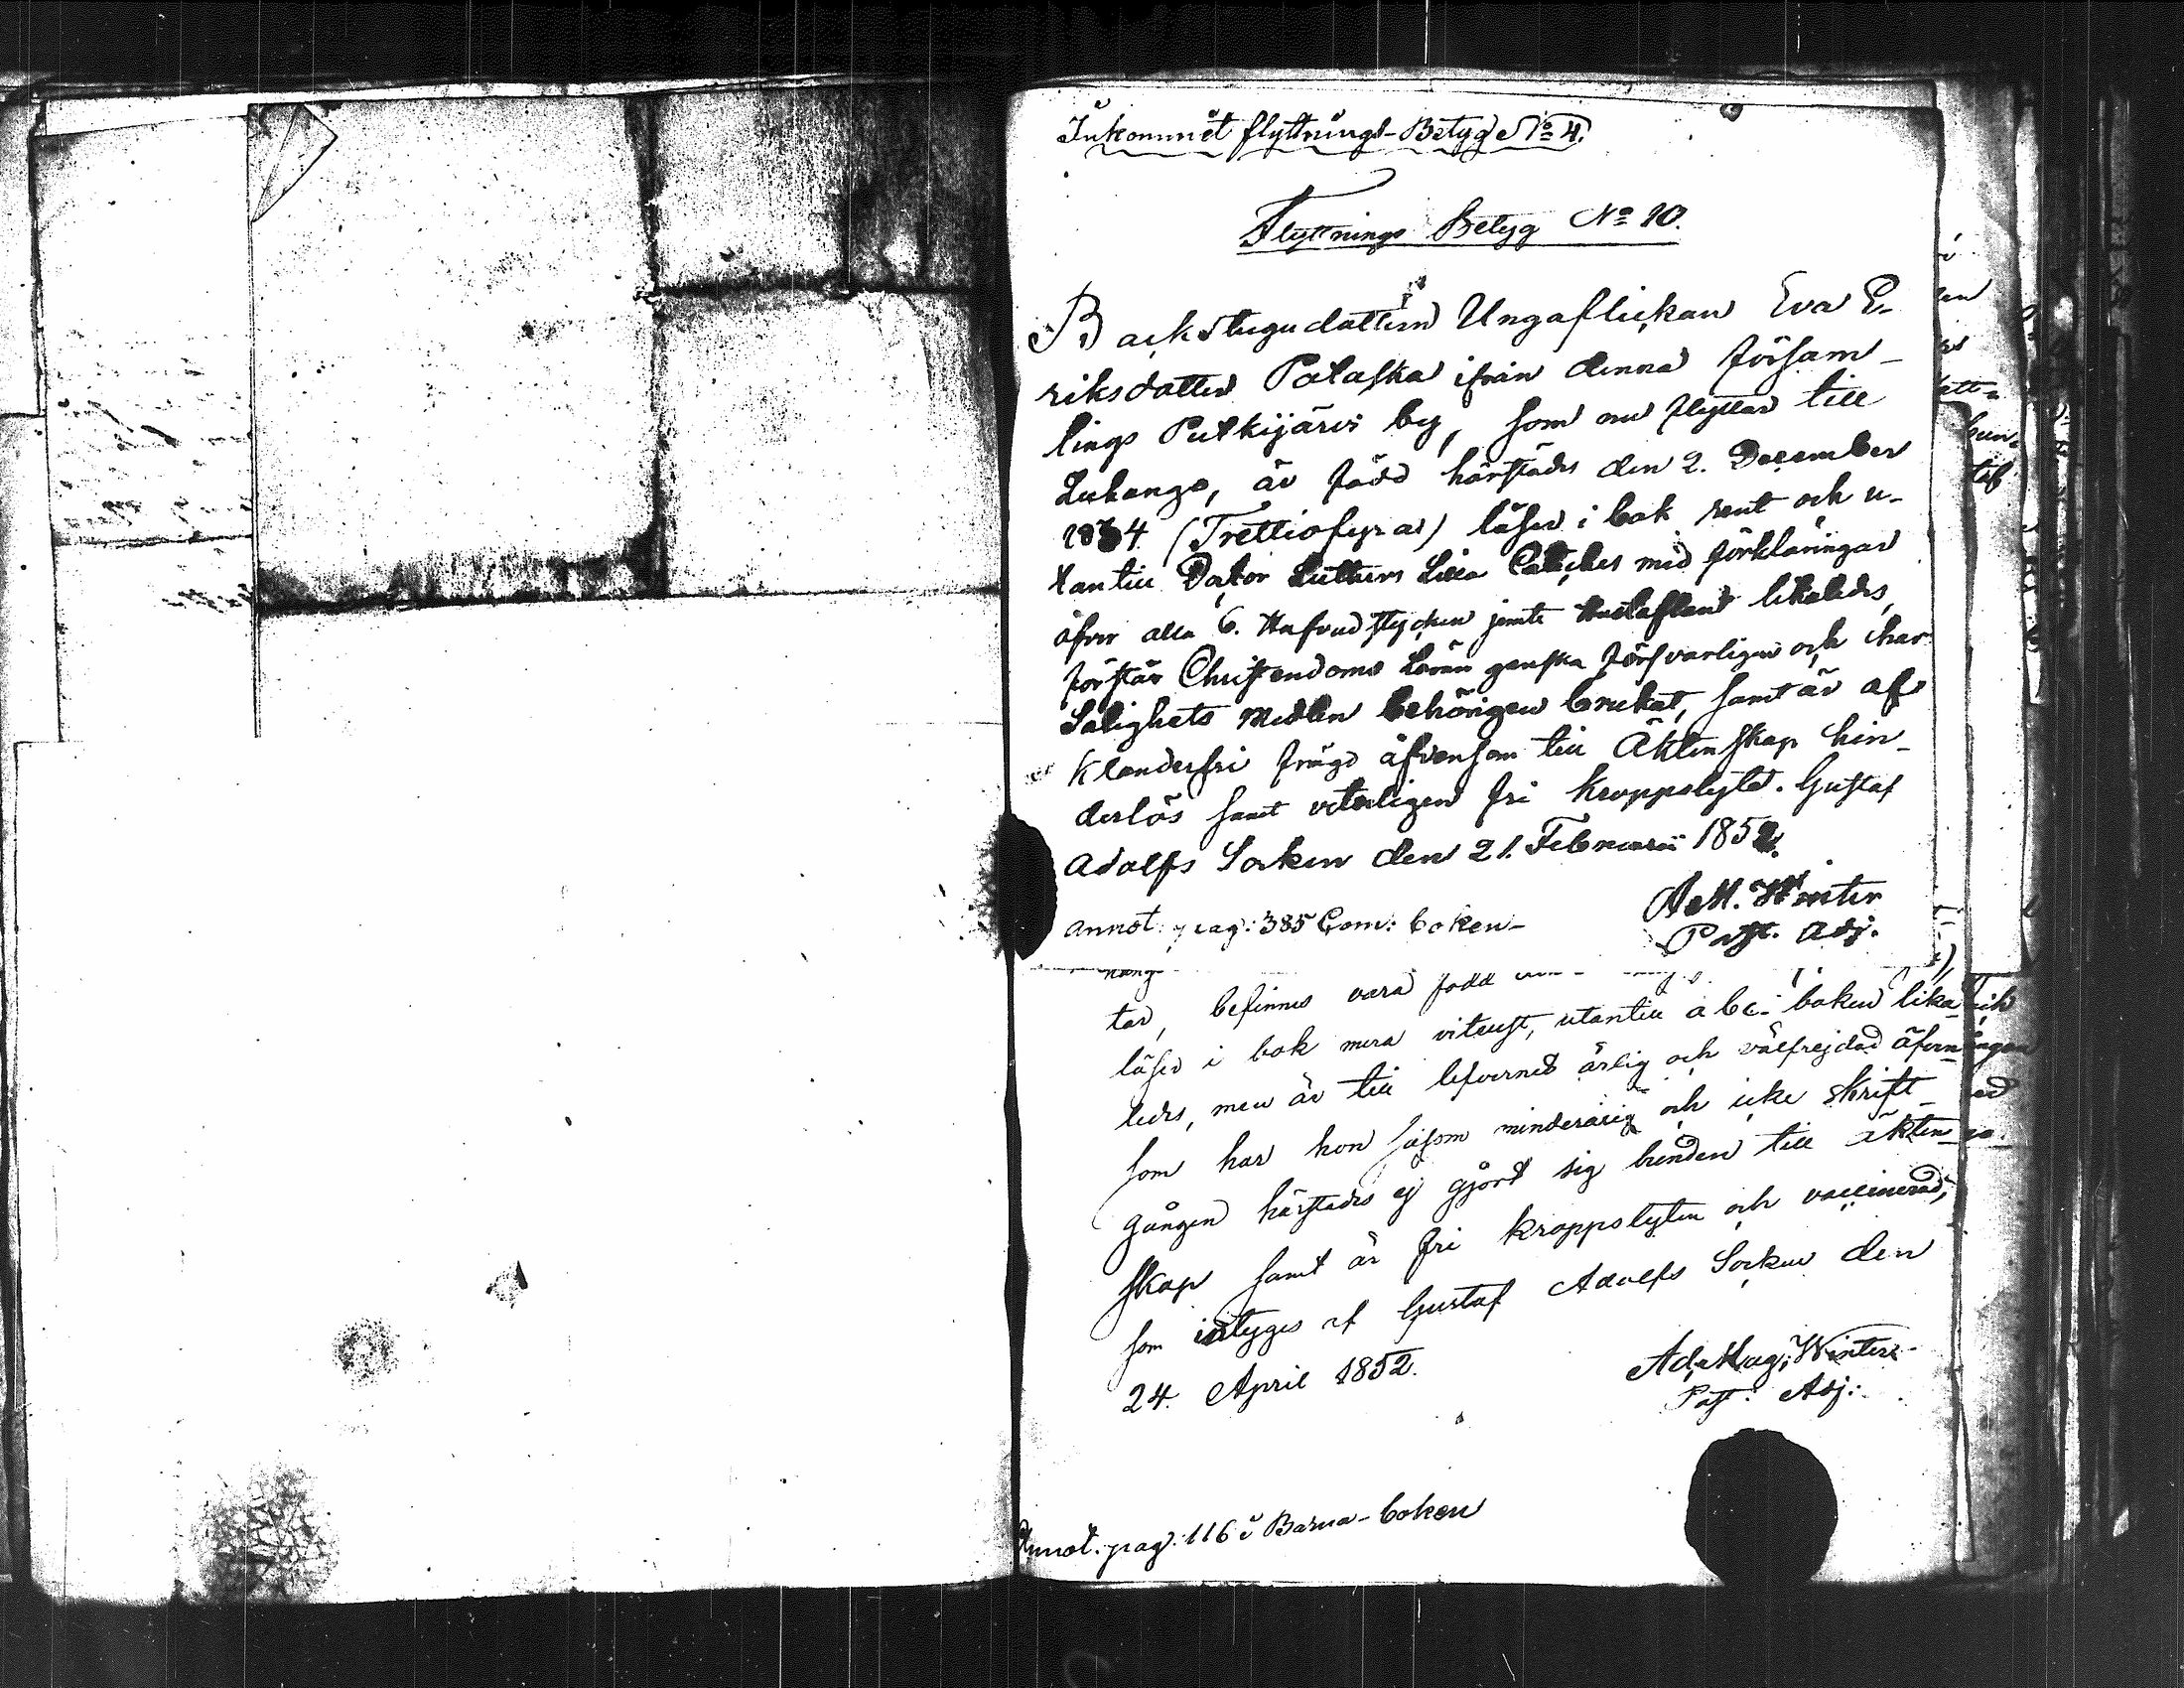 Inkommet flyttnings-Betyg No 4.
Flyttnings Betyg No 10.
Backstugudottern Ungaflickan Eva E-
riksdotter Palaska ifrån denna försam-
lings Putkijärvi by, som nu flyttar till
Luhango, är född härstädes den 2. December
1834 (Trettiofyra) läser i bok rent och u-
tantill Doktor Luthers Lilla Cateches med förklaringar
öfver alla 6. Hufvudstycken jemte Hustaflan likaledes,
förstår Christendoms Läran ganska försvarligen och har
Salighets Medlen behörigen brukat, samt är af
klanderfri frägd äfvensom till Äktenskap hin-
derlös samt veterligen fri kroppslyte. Gustaf
Adolfs Socken den 21. Februarii 1852.
A. M. Winter
Past. Adj.
Annot. pag: 385 Com: boken-
tar, befinnes vara född
läser i bok mera vitsust, utantill abc-boken lika
ledes, men är till lefvernet ärlig och välfrejdad äfven
som har hon såsom minderårig och icke skrift-
gången härstädes ej gjort sig bunden till äkten
skap samt är fri kroppslyten och vaccinerad,
som intyges af Gustaf Adolfs Socken den
24. April 1852.
Ad. Mag. Winter
Past: Adj:
Annot. pag: 116 i Barna-boken